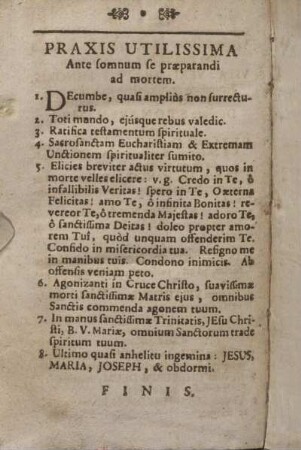 PRAXIS UTILISSIMA
Ante somnum se præparandi
ad mortem.
1. DEcumbe, quasi ampliùs non surrectu-
rus.
2. Toti mundo, ejúsque rebus valedic.
3. Ratifica testamentum spirituale.
4. Sacrosanctam Eucharistiam & Extremam
Unctionem spiritualiter sumito.
5. Elicies breviter actus virtutum, quos in
morte velles elicere: v. g. Credo in Te, ô
infallibilis Veritas! spero in Te, O æterna
Felicitas! amo Te, ô infinita Bonitas! re-
vereor Te, ô tremenda Majestas! adoro Te,
ô sanctissima Deitas! doleo propter amo-
rem Tuî, quòd unquam offenderim Te.
Confido in misericordia tua. Resigno me
in manibus tuis. Condono inimicis. Ab
offensis veniam peto.
6. Agonizanti in Cruce Christo, suavissimæ
morti Sanctissimæ Matris ejus, omnibus
Sanctis commenda agonem tuum.
7. In manus sanctissimæ Trinitatis, JEsu Chri-
sti, B. V. Mariæ, omnium Sanctorum trade
spiritum tuum.
8. Ultimo quasi anhelitu ingemina: JESUS,
MARIA, JOSEPH, & obdormi.
FINIS.